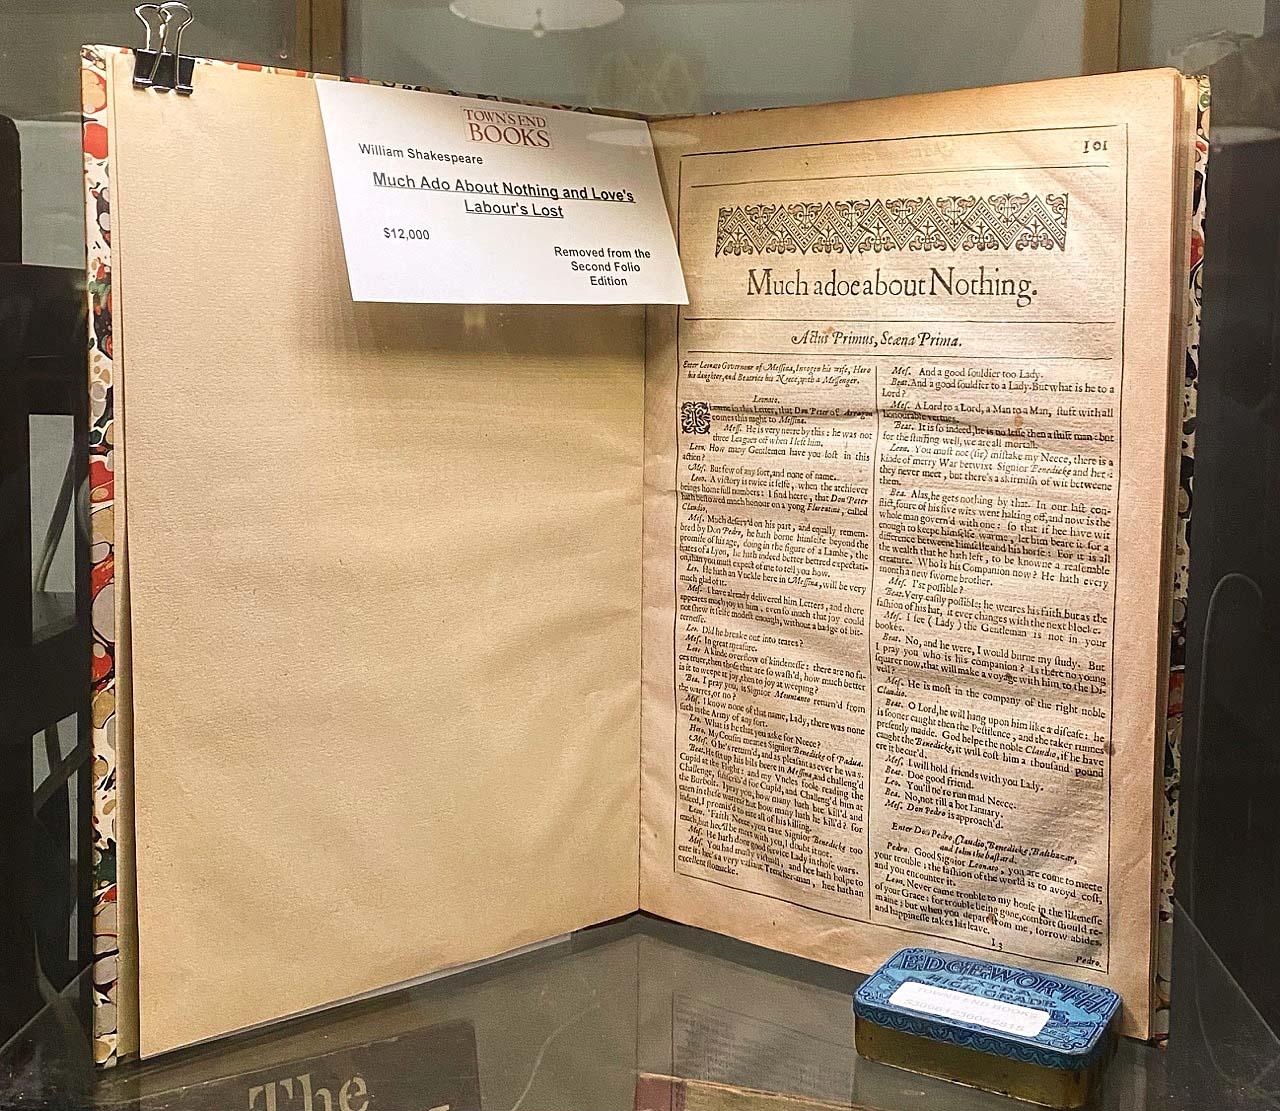 TOWN'S END
BOOKS
William Shakespeare
Much Ado About Nothing and Love's
Labour's Lost
$12,000
Removed from the
Second Folio
Edition
101
Much adoe about Nothing.
Actus Primus, Scæna Prima.
Enter Leonato Governour of Messina, Innogen his wife, Hero
his daughter, and Beatrice his Neece, with a Messenger.
Leonato.
in this Letter, that Don Peter of Arragon
comes this night to Messina.
Mess. He is very neere by this: he was not
three Leagues off when I left him.
Leon. How many Gentlemen have you lost in this
action?
Mess. But few of any sort, and none of name.
Leon. A victory is twice it selfe, when the atchiever
brings home full numbers: I find heere, that Don Peter
hath bestowed much honour on a yong Florentine, called
Claudio.
Mess. Much deserv'd on his part, and equally remem-
bred by Don Pedro, he hath borne himselfe beyond the
promise of his age, doing in the figure of a Lambe, the
feates of a Lyon, he hath indeed better bettred expectati-
on, than you must expect of me to tell you how.
Leo. He hath an Vnckle here in Messina, will be very
much glad of it.
Mess. I have already delivered him Letters, and there
appeares much joy in him, even so much that joy could
not shew it selfe modest enough, without a badge of bit-
ternesse.
Leo. Did he breake out into teares?
Mess. In great measure.
Leo. A kinde overflow of kindenesse: there are no fa-
ces truer, then those that are so wash'd, how much better
is it to weepe at joy, then to joy at weeping?
Bea. I pray you, is Signior Mountanto return'd from
the warres, or no?
Mess. I know none of that name, Lady, there was none
such in the Army of any sort.
Leo. What is he that you aske for Neece?
Hero. My Cousin meanes Signior Benedicke of Padua.
Mess. O he's return'd, and as pleasant as ever he was.
Beat. He set up his bils heere in Messina, and challeng'd
Cupid at the Flight: and my Vncles foole reading the
Challenge, subscrib'd for Cupid, and Challeng'd him at
the Burbolt. I pray you, how many hath hee kill'd and
eaten in these warres? but how many hath he kill'd? for
indeed, I promis'd to eate all of his killing.
Leon. 'Faith Neece, you taxe Signior Benedicke too
much, but hee'll be meet with you, I doubt it not.
Mess. He hath done good service Lady in those wars.
Beat. You had musty victuall, and hee hath holpe to
eate it: hee's a very valiant Trencher-man, hee hath an
excellent stomacke.
Mess. And a good souldier too Lady.
Beat. And a good souldier to a Lady. But what is he to a
Lord?
Mess. A Lord to a Lord, a Man to a Man, stuft with all
honourable vertues.
Beat. It is so indeed, he is no lesse then a stuft man: but
for the stuffing well, we are all mortall.
Leon. You must not (sir) mistake my Neece, there is a
kinde of merry War betwixt Signior Benedicke and her:
they never meet, but there's a skirmish of wit betweene
them.
Bea. Alas, he gets nothing by that. In our last con-
flict, foure of his five wits went halting off, and now is the
whole man govern'd with one: so that if hee have wit
enough to keepe himselfe warme, let him beare it for a
difference betweene himselfe and his horse: For it is all
the wealth that he hath left, to be knowne a reasonable
creature. Who is his Companion now? He hath every
month a new sworne brother.
Mess. I'st possible?
Beat. Very easily possible; he weares his faith but as the
fashion of his hat, it ever changes with the next blocke.
Mess. I see (Lady) the Gentleman is not in your
bookes.
Beat. No, and he were, I would burne my study. But
I pray you who is his companion? Is there no young
squarer now, that will make a voyage with him to the Di-
vell?
Mess. He is most in the company of the right noble
Claudio.
Beat. O Lord, he will hang upon him like a disease: he
is sooner caught then the Pestilence, and the taker runnes
presently madde. God helpe the noble Claudio, if he have
caught the Benedicke, it will cost him a thousand pound
ere it be cur'd.
Mess. I will hold friends with you Lady.
Beat. Doe good friend.
Leo. You'll ne're run mad Neece.
Bea. No, not till a hot Ianuary.
Mess. Don Pedro is approach'd.
Enter Don Pedro, Claudio, Benedicke, Balthazar,
and Iohn the bastard.
Pedro. Good Signior Leonato, you are come to meete
your trouble: the fashion of the world is to avoyd cost,
and you encounter it.
Leon. Never came trouble to my house in the likenesse
of your Grace: for trouble being gone, comfort should re-
maine; but when you depart from me, sorrow abides,
and happinesse takes his leave.
I 3
Pedro.
EDGEWORTH
EXTRA
HIGH GRADE
TOWN'S END BOOKS
The